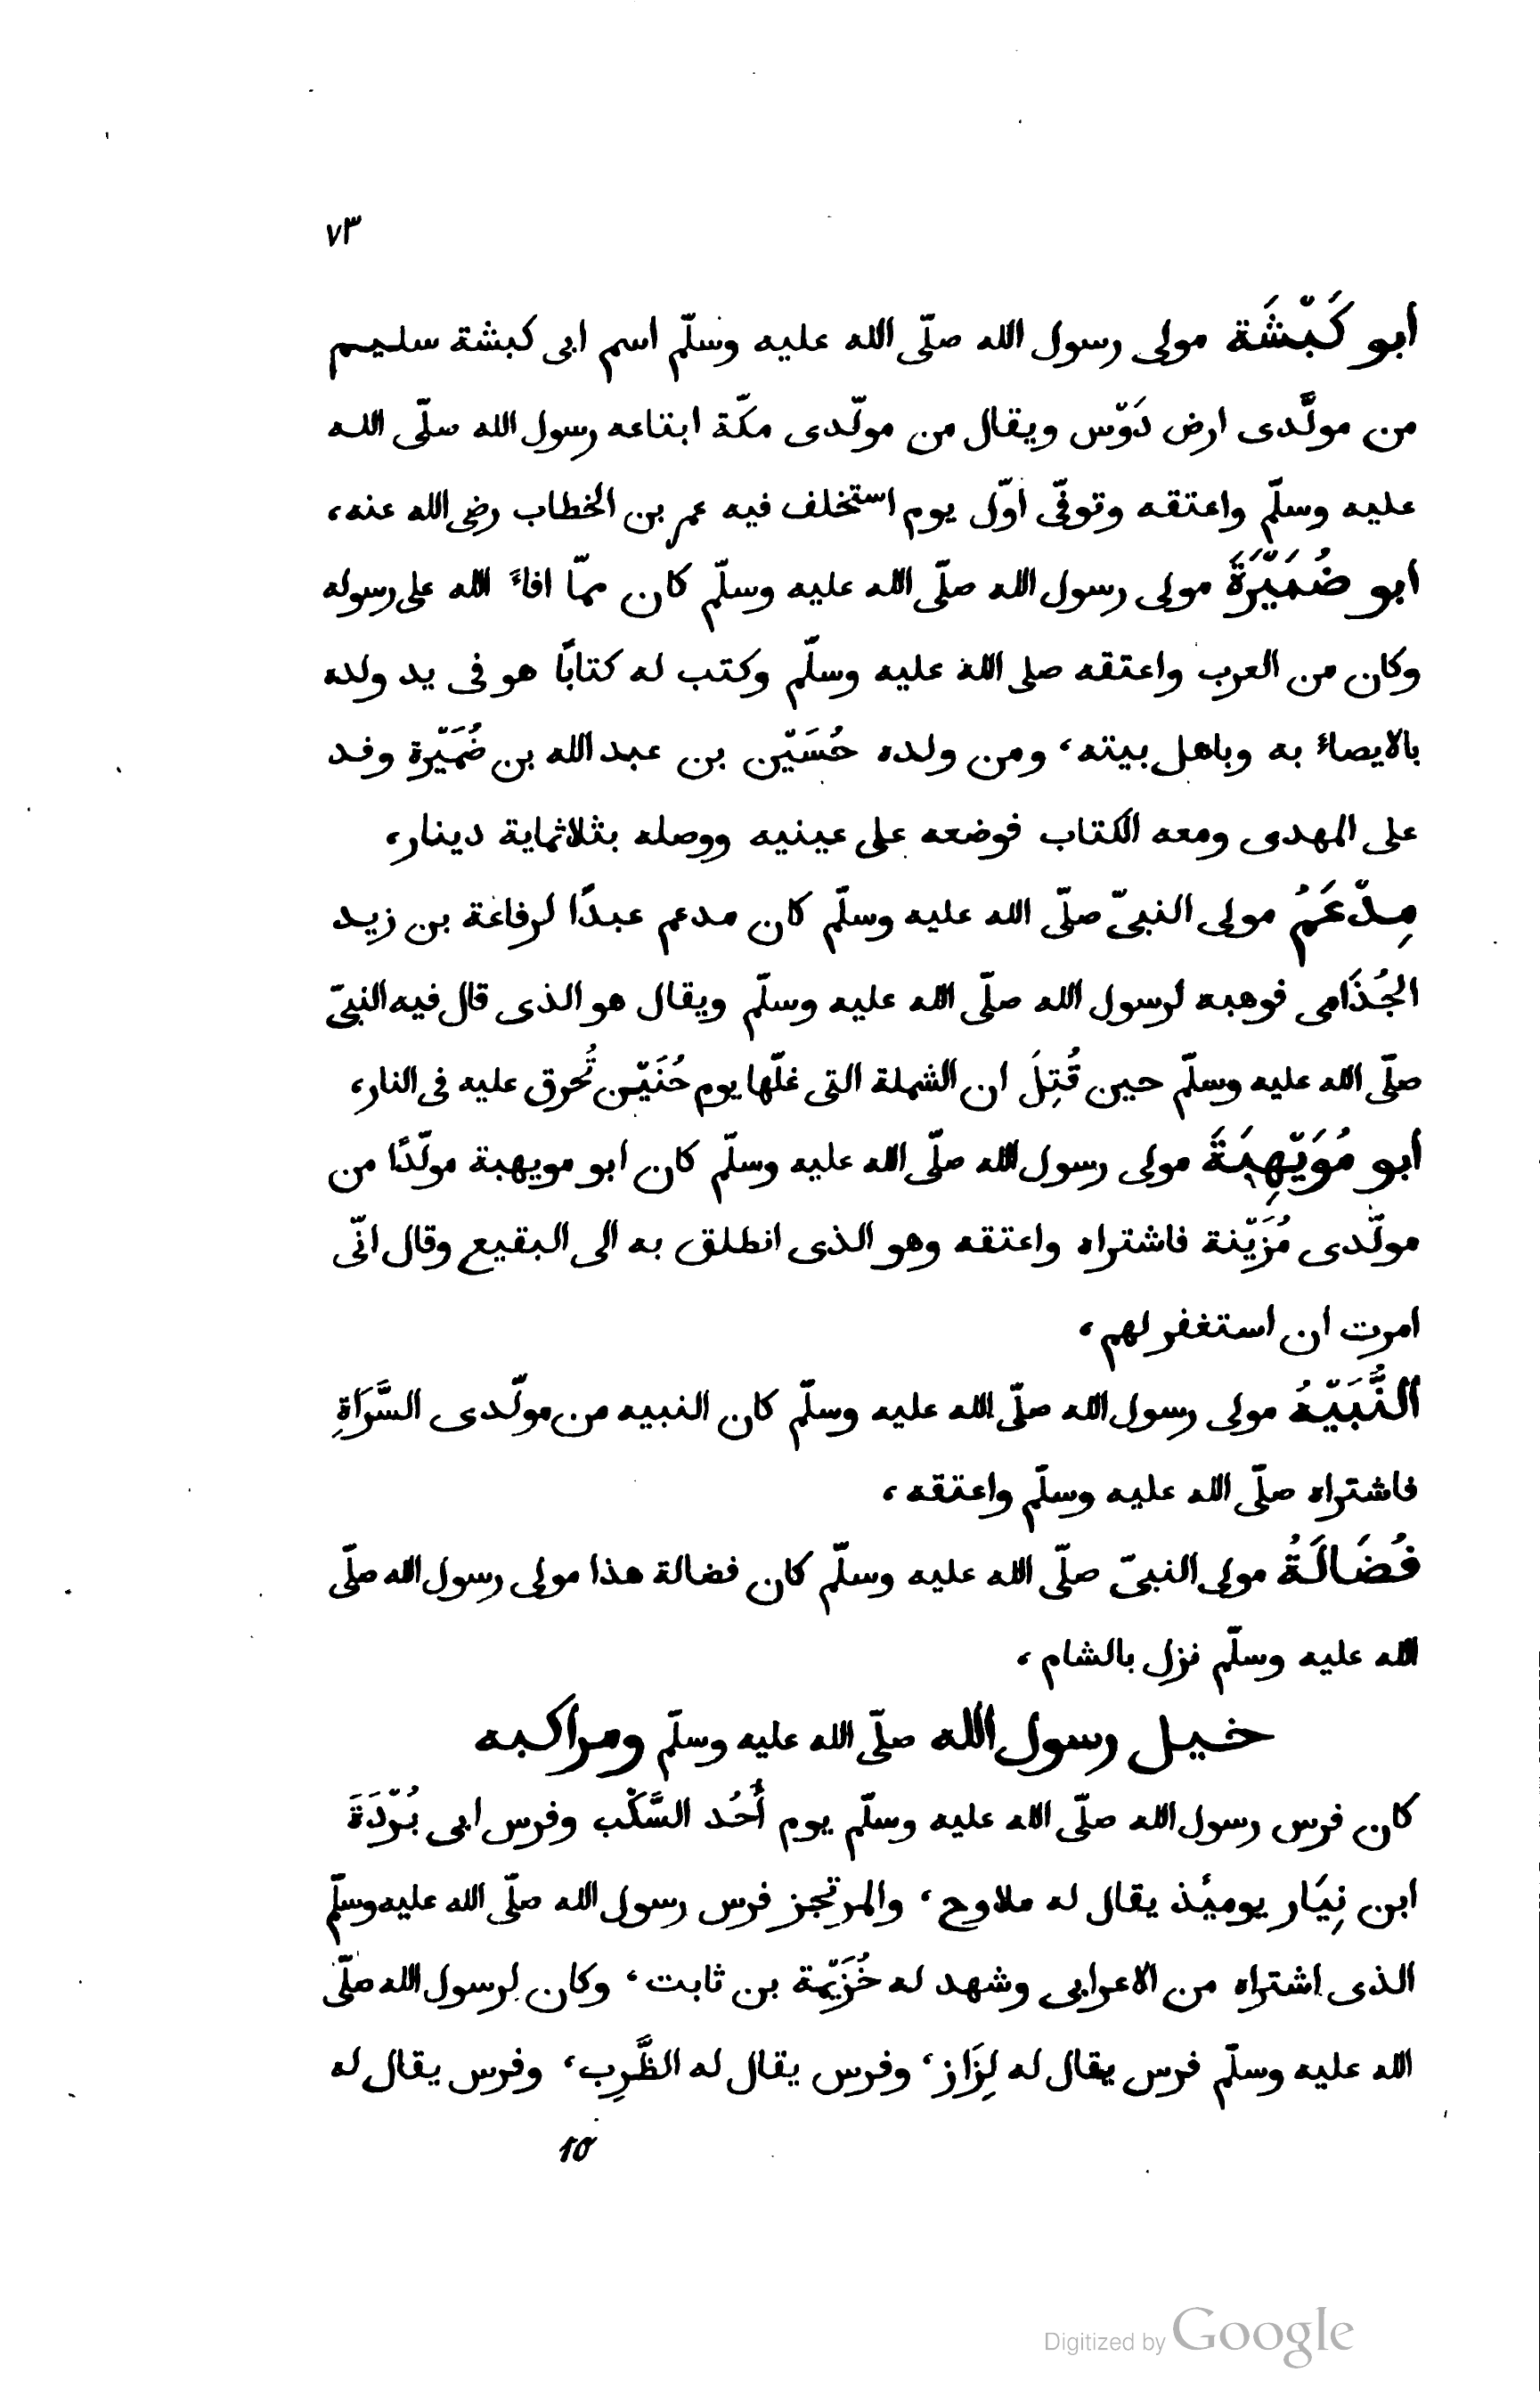 ٧٣
ابو كَبْشَة مولى رسول الله صلّى الله عليه وسلّم اسم ابى كبشة سليم
من مولَّدى ارض دَوْس ويقال من مولّدى مكّة ابتاعه رسول الله صلّى الله
عليه وسلّم واعتقه وتوفّى اوّل يوم استخلف فيه عمر بن الخطاب رضى الله عنه،
ابو ضُمَيْرَةَ مولى رسول الله صلّى الله عليه وسلّم كان ممّا افاءَ الله على رسوله
وكان من العرب واعتقه صلى الله عليه وسلّم وكتب له كتابًا هو فى يد ولده
بالايصاء به وباهل بيته، ومن ولده حُسَيْن بن عبد الله بن ضُمَيْرة وفد
على المهدى ومعه الكتاب فوضعه على عينيه ووصله بثلاثماية دينار،
مِدْعَمُ مولى النبىّ صلّى الله عليه وسلّم كان مدعم عبدًا لرفاعة بن زيد
الجُذَامى فوهبه لرسول الله صلّى الله عليه وسلّم ويقال هو الذى قال فيه النبىّ
صلّى الله عليه وسلّم حين قُتِلَ ان الشملة التى غلّها يوم حُنَيْن تُحرق عليه فى النار،
ابو مُوَيْهِبَةَ مولى رسول الله صلّى الله عليه وسلّم كان ابو مويهبة مولّدًا من
مولّدى مُزَيْنة فاشتراه واعتقه وهو الذى انطلق به الى البقيع وقال انّى
امرت ان استغفر لهم،
النُّبَيْهُ مولى رسول الله صلّى الله عليه وسلّم كان النبيه من مولّدى السَّرَاةِ
فاشتراه صلّى الله عليه وسلّم واعتقه،
فُضَالَةُ مولى النبىّ صلّى الله عليه وسلّم كان فضالة هذا مولى رسول الله صلّى
الله عليه وسلّم نزل بالشام،
خيل رسول الله صلّى الله عليه وسلّم ومراكبه
كان فرس رسول الله صلّى الله عليه وسلّم يوم أُحُد السَّكْب وفرس ابى بُرْدَةَ
ابن نِيَار يومئذ يقال له ملاوح، والمرتجز فرس رسول الله صلّى الله عليه وسلّم
الذى اشتراه من الاعرابى وشهد له خُزَيْمة بن ثابت، وكان لرسول الله صلّى
الله عليه وسلّم فرس يقال له لِزَاز، وفرس يقال له الظَّرِب، وفرس يقال له
10
Digitized by Google